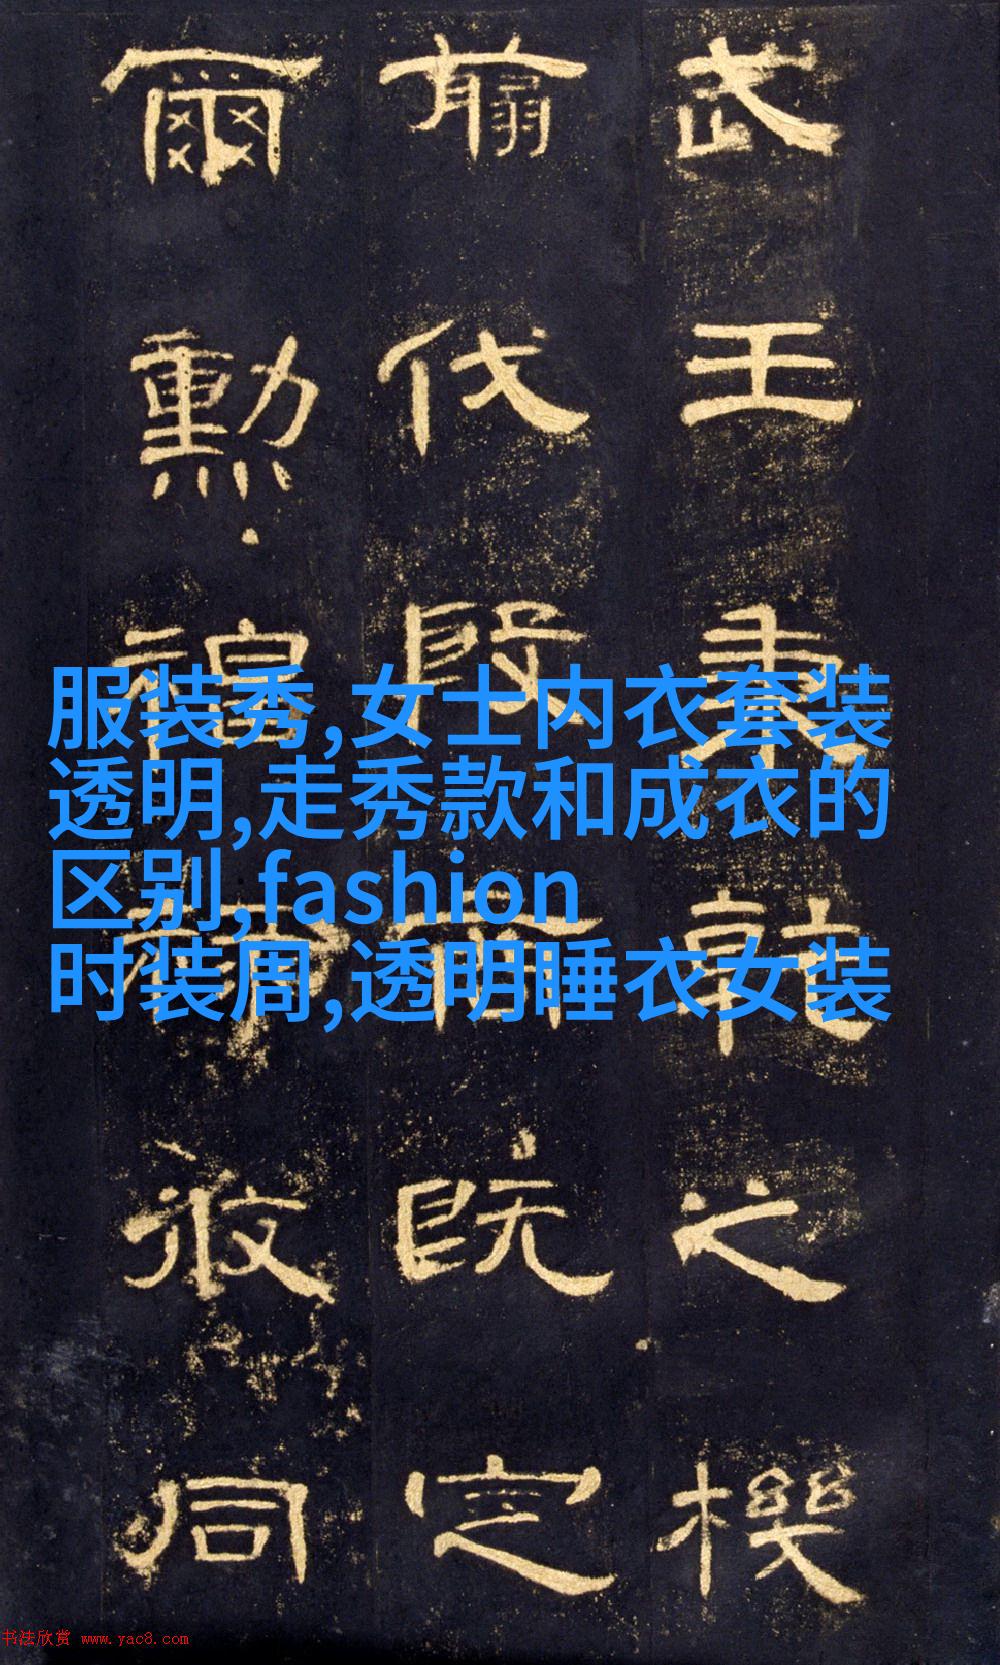 武王秉乾之機
翦伐殷商既定
爾勳福祿攸同
服装秀,女士内衣套装
透明,走秀款和成衣的
区别,fashion
时装周,透明睡衣女装
书法欣赏 www.yac8.com